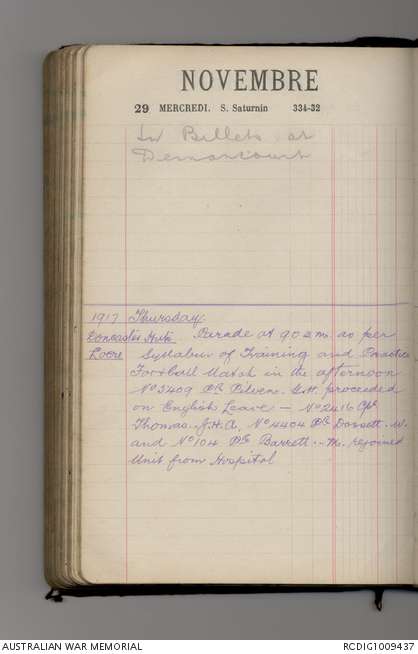 NOVEMBRE
29 MERCREDI. S. Saturnin 334-32
In Billets at
Dernancourt
1917 Thursday.
Doncaster Huts Parade at 9.0 a m. as per
Locre Syllabus of Training and Practice
Football Match in the afternoon
No 3409 Pte Pilven. G.H. proceeded
on English Leave – No 2416 Cpl
Thomas. J.H.A, No 4404 Pte Dossett. W.
and No 104 Pte Barrett. - M. rejoined
Unit from Hospital
AUSTRALIAN WAR MEMORIAL
RCDIG1009437